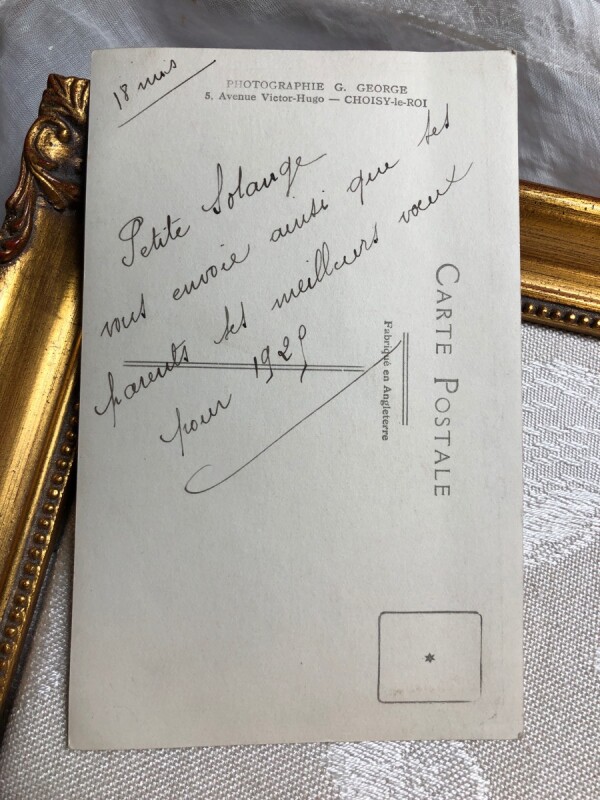 18 mois
PHOTOGRAPHIE G. GEORGE
5, Avenue Victor-Hugo — CHOISY-le-ROI
Petite Solange
vous envoie ainsi que ses
parents ses meilleurs vœux
pour 1929
CARTE POSTALE
Fabriqué en Angleterre